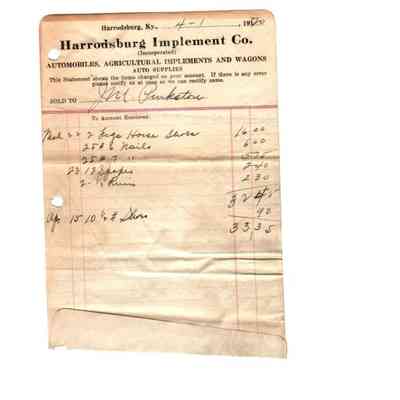 Harrodsburg, Ky., 4-1, 19
Harrodsburg Implement Co.
(Incorporated)
AUTOMOBILES, AGRICULTURAL IMPLEMENTS AND WAGONS
AUTO SUPPLIES
This Statement shows the items charged on your account. If there is any error
please notify us at once so we can rectify same.
SOLD TO J M Pinkston
To Account Rendered,
22 2 Kegs Horse Shoes 16 00
25 # Nails 6 00
25 # 7 "
22 12 2 40
2 2 30
32 45
Ap 15 10 # Shoes 90
33 35